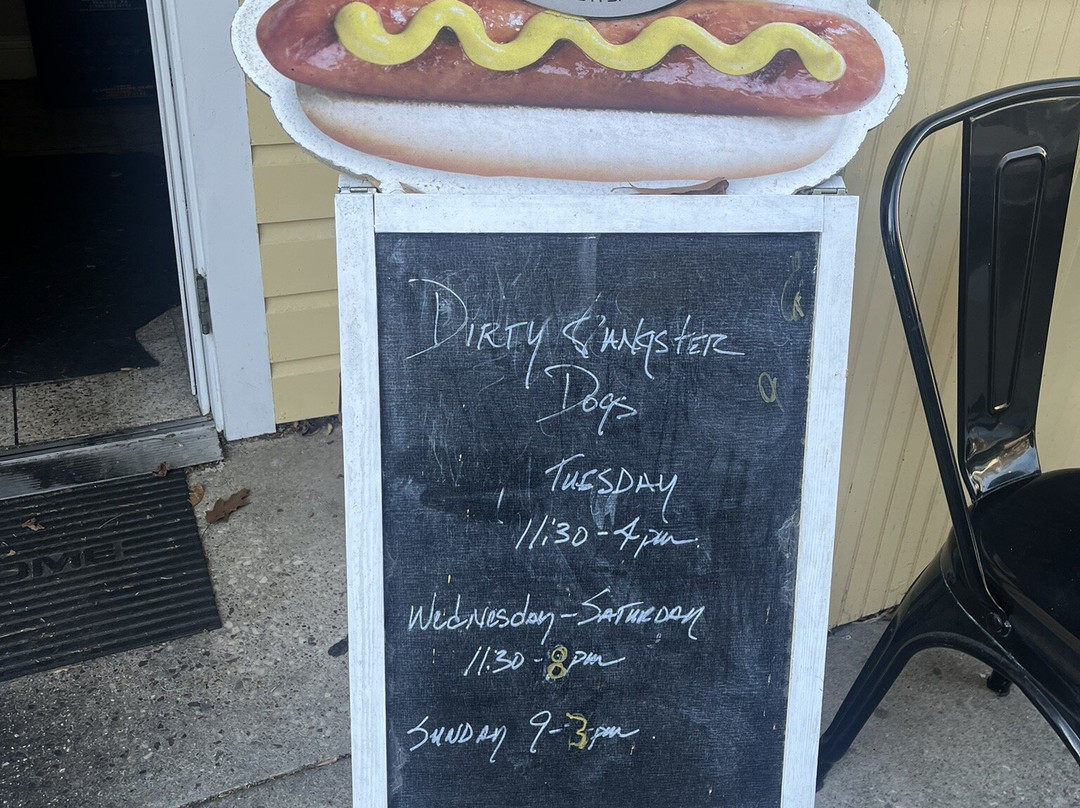 DIRTY GANGSTER
DOGS
TUESDAY
11:30-4pm.
Wednesday-SATURDAY
11:30-8pm
SUNDAY 9-3pm.